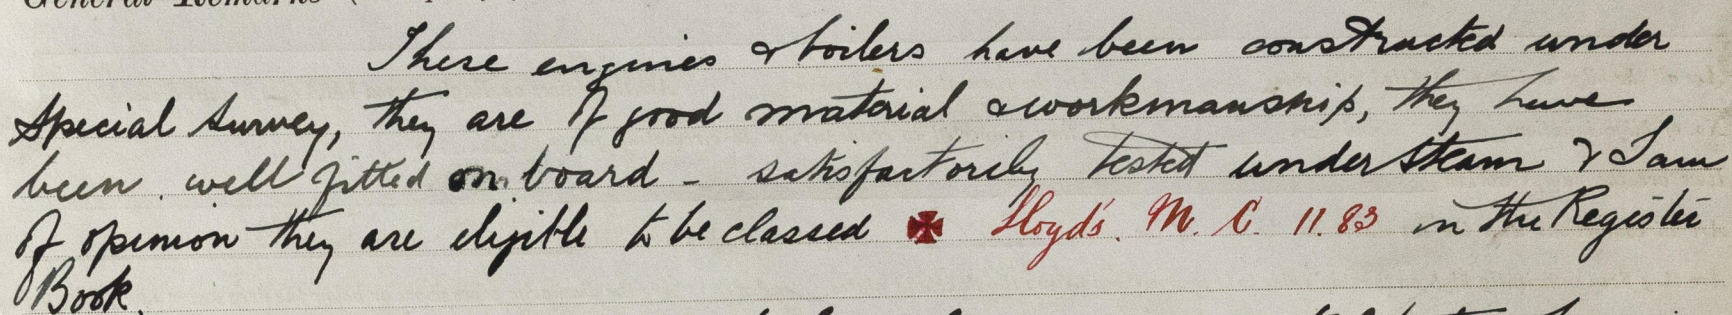 General Remarks (
These engines & boilers have been constructed under
Special Survey, they are of good material & workmanship, they have
been well fitted on board - satisfactorily tested under steam & I am
of opinion they are eligible to be classed ✠ Lloyd's. M. C. 11.83 in the Register
Book.